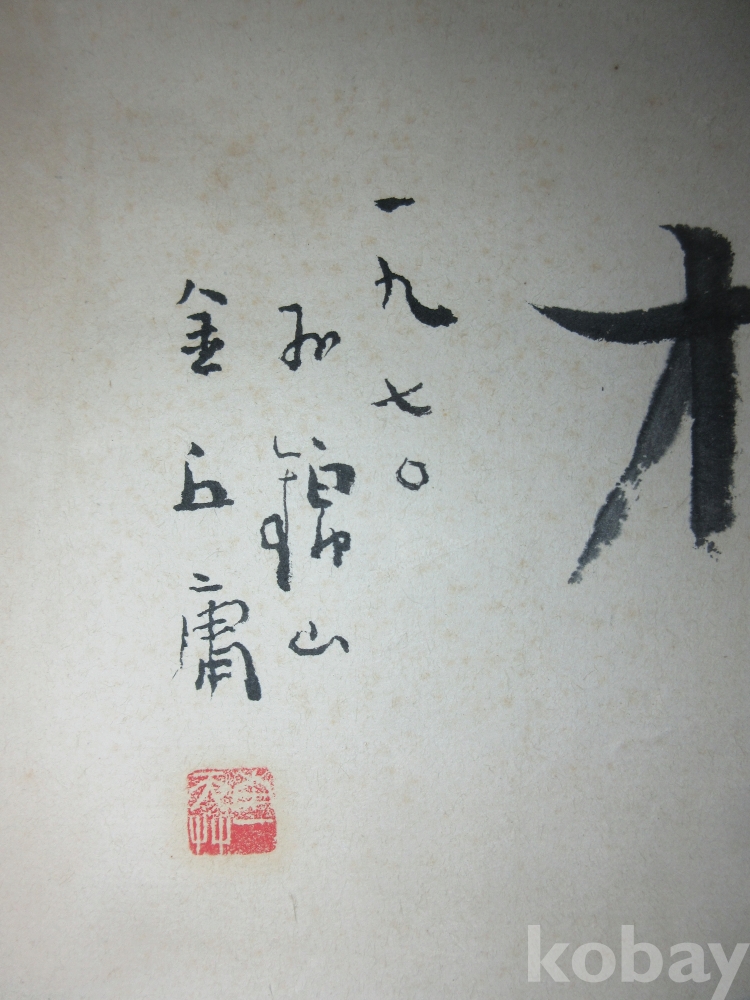 一九七〇
孙錦山
金丘庸
kobay